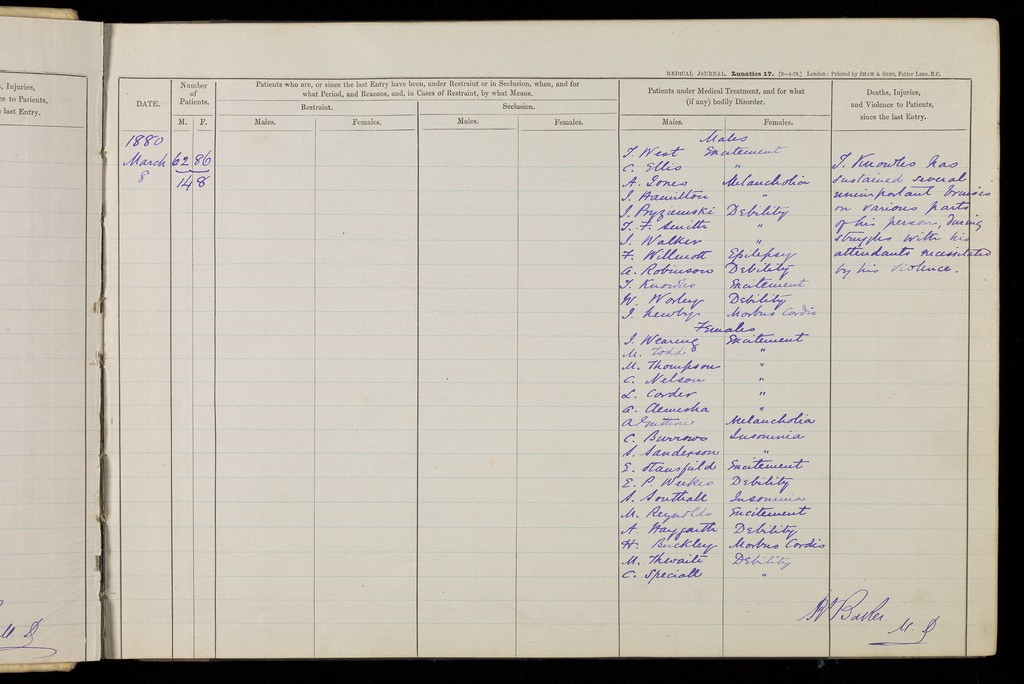 , Injuries,
ce to Patients,
last Entry.
M. D
MEDICAL JOURNAL. Lunatics 17. [9—4-79.] London: Printed by SHAW & SONS, Fetter Lane, E.C.
DATE.
Number
of
Patients.
M. F.
Patients who are, or since the last Entry have been, under Restraint or in Seclusion, when, and for
what Period, and Reasons, and, in Cases of Restraint, by what Means.
Restraint. Seclusion.
Males. Females. Males. Females.
Patients under Medical Treatment, and for what
(if any) bodily Disorder.
Males. Females.
Deaths, Injuries,
and Violence to Patients,
since the last Entry.
1880
March 62 86
8 148
Males
T. West Excitement
C. Ellis "
A. Jones Melancholia
J. Hamilton "
J. Debility
T. F. Smith "
J. Walker "
F. Willmott Epilepsy
A. Robinson Debility
T. Knowles Excitement
W. Worley Debility
J. Newby Morbus Cordis
Females
J. Wearing Excitement
M. Todd "
M. Thompson "
C. Nelson "
L. Corder "
A. Clemesha "
A Melancholia
C. Burrows Insomnia
S. Sanderson "
E. Stansfield Excitement
E. P. Weekes Debility
S. Southall Insomnia
M. Reynolds Excitement
A. Haygarth Debility
H. Buckley Morbus Cordis
M. Thwaite Debility
C. Speciall "
T. Knowles has
sustained several
unimportant bruises
on various parts
of his person, during
struggles with his
attendants necessitated
by his violence.
Baker M. D